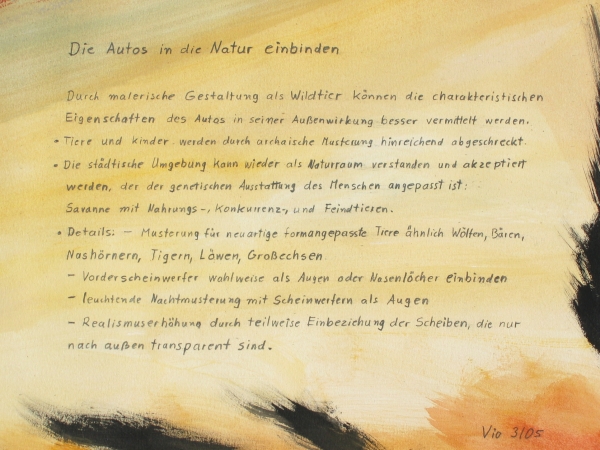 Die Autos in die Natur einbinden
Durch malerische Gestaltung als Wildtier können die charakteristischen
Eigenschaften des Autos in seiner Außenwirkung besser vermittelt werden.
• Tiere und Kinder werden durch archaische Musterung hinreichend abgeschreckt.
• Die städtische Umgebung kann wieder als Naturraum verstanden und akzeptiert
werden, der der genetischen Ausstattung des Menschen angepasst ist:
Savanne mit Nahrungs-, Konkurrenz-, und Feindtieren.
• Details: – Musterung für neuartige formangepasste Tiere ähnlich Wölfen, Bären,
Nashörnern, Tigern, Löwen, Großechsen
– Vorderscheinwerfer wahlweise als Augen oder Nasenlöcher einbinden
– leuchtende Nachtmusterung mit Scheinwerfern als Augen
– Realismuserhöhung durch teilweise Einbeziehung der Scheiben, die nur
nach außen transparent sind.
Vio 3/05